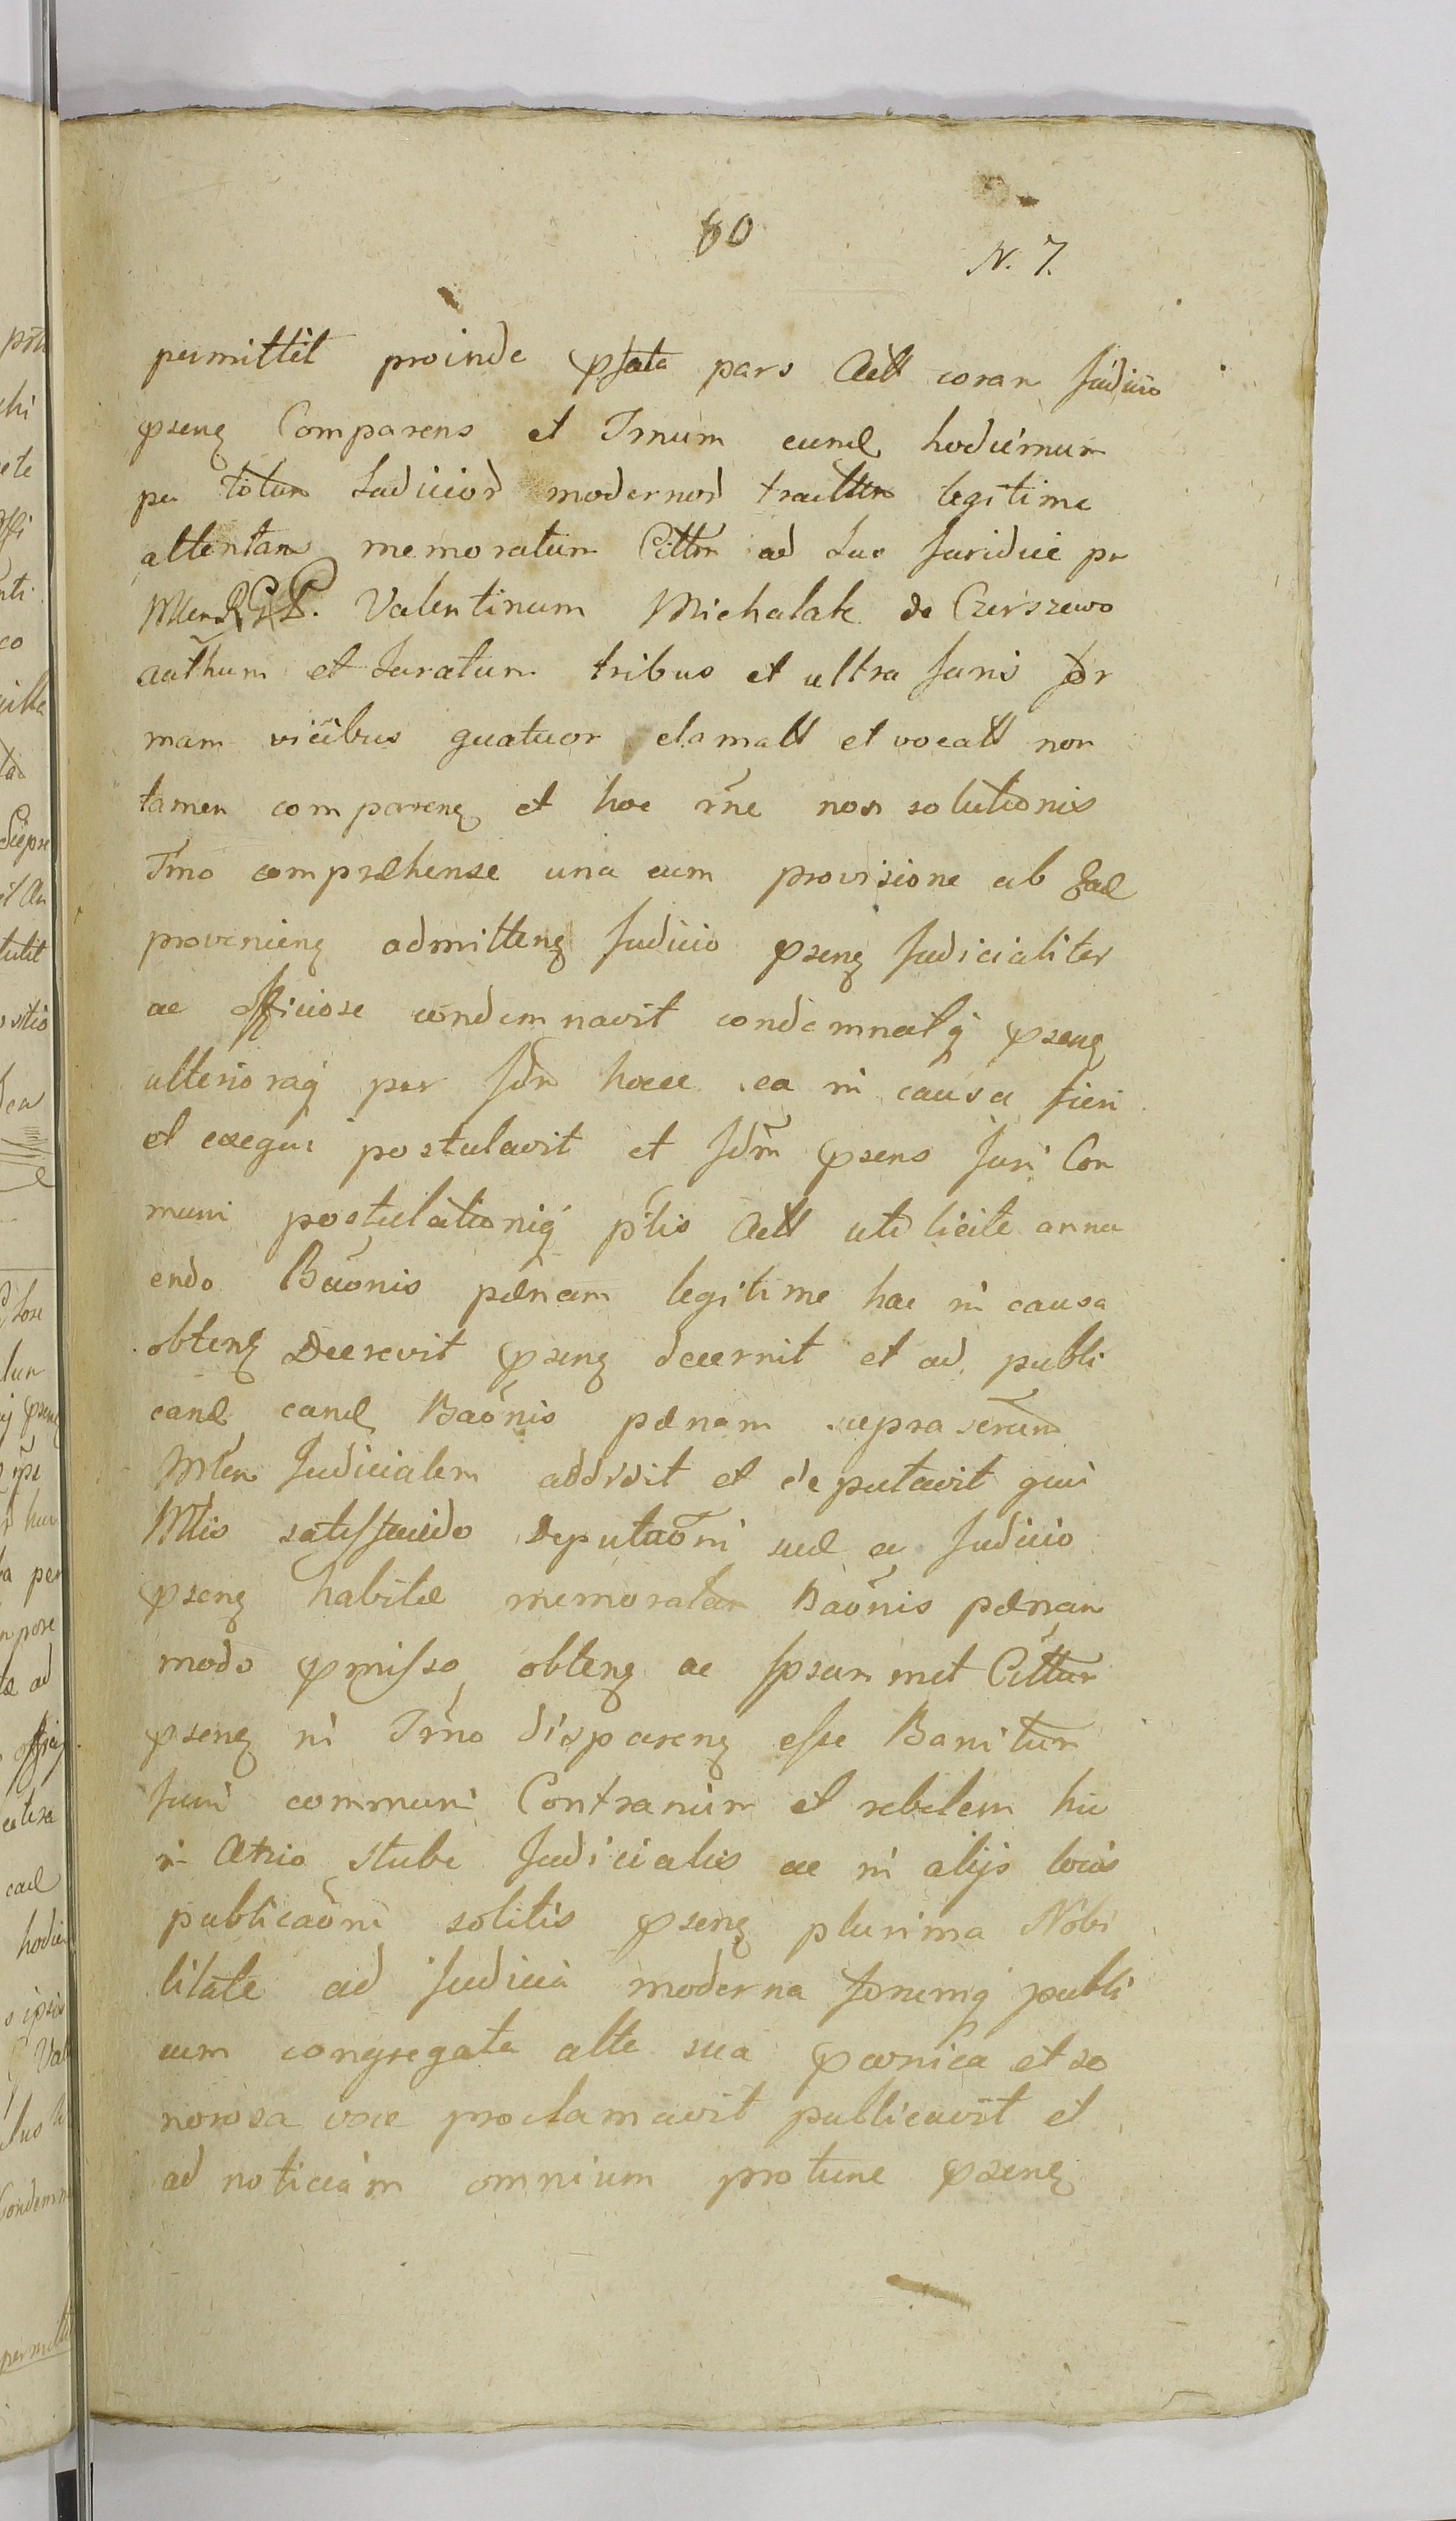 60
N. 7.
permittit proinde pſata pars Actt coram Judicio
pseng Comparens et Trnum eund hodiernum
per totum Judicior modernor tracttum legitime
attentans memoratum Cittm ad Jus Juridice pr
Mlem R. G. L. Valentinum Michalak de Czerszewo
authum et Juratum tribus et ultra Juris for
mam vicibus quatuor clamatt et vocatt non
tamen compareng et hoc rñe non solutionis
Trno compræhensæ una cum provisione ab ead
provenieng admitteng Judicio pseng Judicialiter
ac officiose condemnavit condemnatq pseng
ulterioraq per Jdm hocce ea in causa fieri
et exequi postulavit et Jdm psens Juri Com
muni postulationiq ptis Actt uti licite annu
endo Bãonis pænam legitime hac in causa
obteng Decrevit pseng decernit et ad publi
cand eand Bãonis pænam suprascrum
Mlem Judicialem addidit et deputavit qui
Mlis satisfaciendo Deputãoni suæ a Judicio
pseng habitæ memoratam Bãonis pænam
modo pmiſso obteng ac Ipsummet Cittum
pseng in Trño dispareng eſse Banitum
Juri communi Contrarium et rebelem hic
in Atrio stubæ Judicialis ac in alijs locis
publicãoni solitis pseng plurima Nobi
litate ad Judicia moderna forumq publi
cum congregata alte sua præconica et so
norosa voce proclamavit publicavit et
ad noticiam omnium protunc pseng